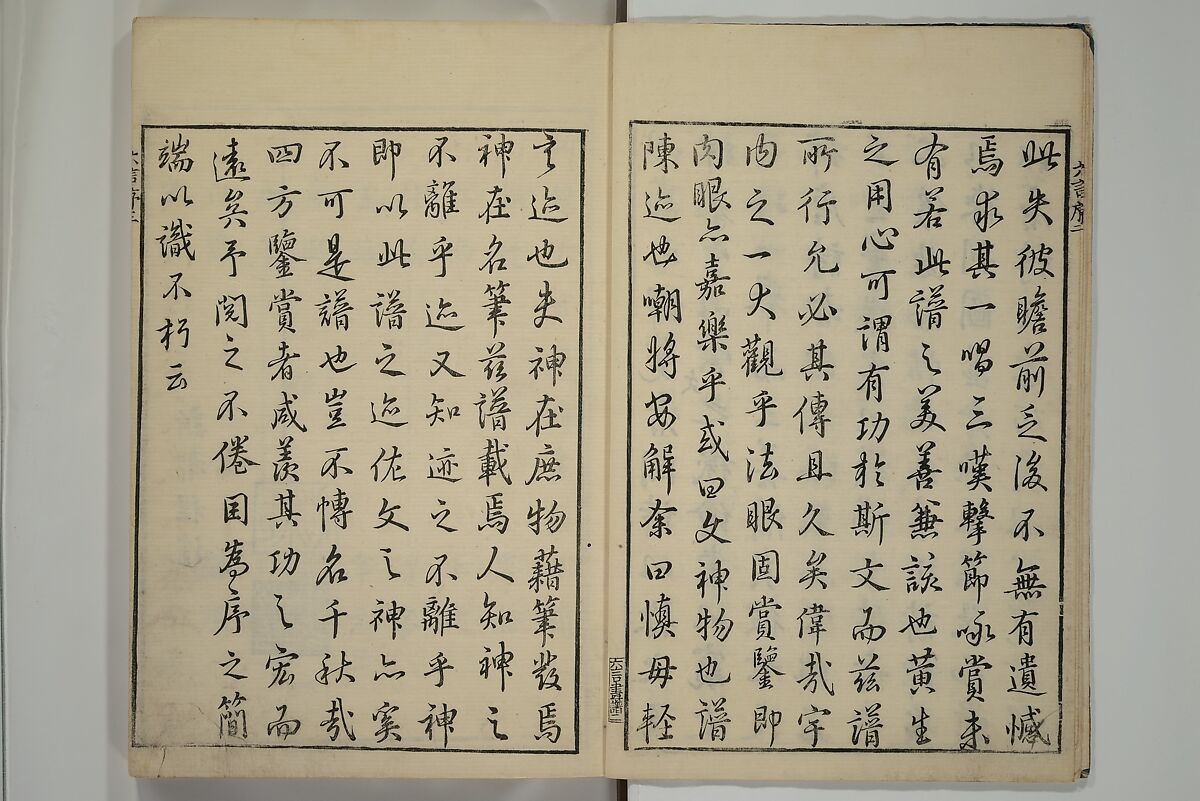 此失彼瞻前乏後不無有遺憾
焉求其一唱三嘆擊節咏賞未
有若此譜之美善兼該也黃生
之用心可謂有功於斯文而茲譜
所行允必其傳且久矣偉哉宇
內之一大觀乎法眼固賞鑒即
肉眼亦嘉樂乎或曰文神物也譜
陳迹也嘲將安解余曰慎毋輕
言迹也夫神在庶物藉筆發焉
神在名筆茲譜載焉人知神之
不離乎迹又知迹之不離乎神
即以此譜之迹佐文之神亦奚
不可是譜也豈不傳名千秋哉
四方鑒賞者咸羨其功之宏而
遠矣予閱之不倦因為序之簡
端以識不朽云
六言序二
六言書譜